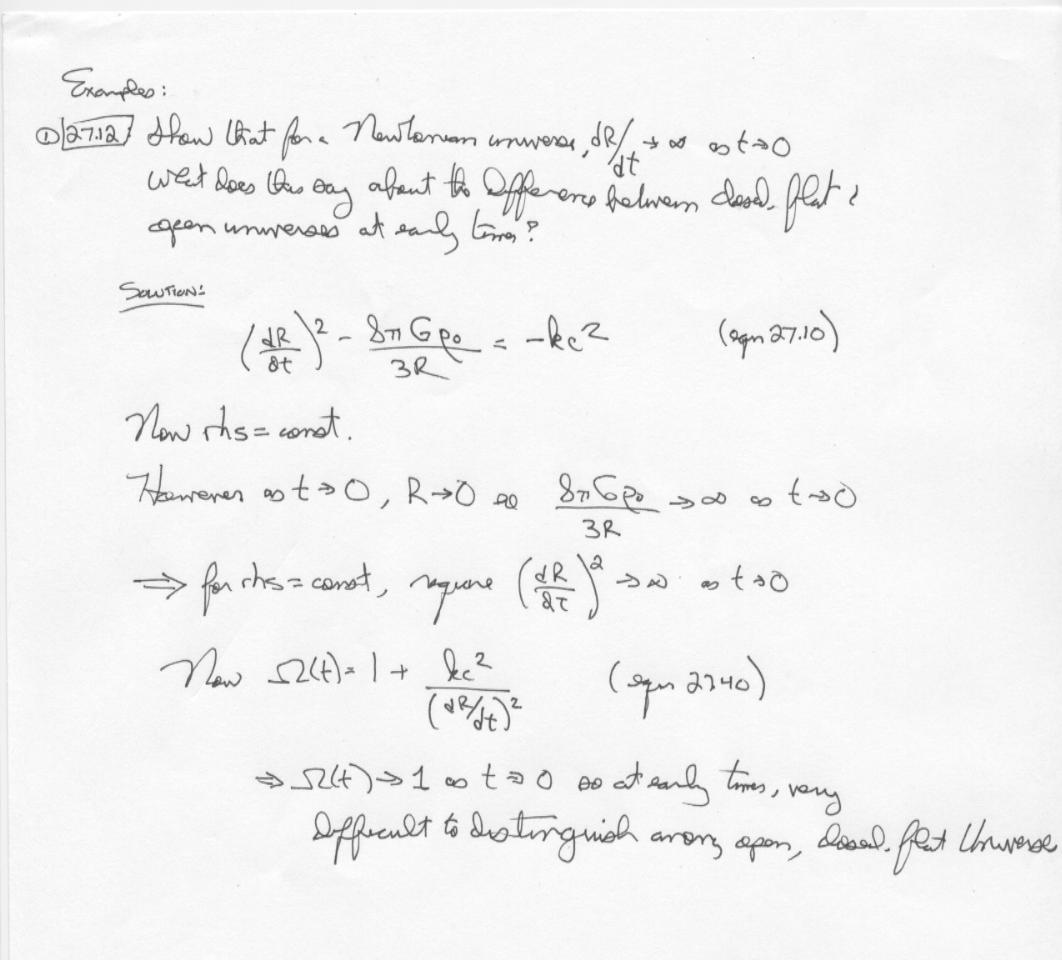 Examples:
① 27.12 Show that for a Newtonian universe, dR/dt → ∞ as t→0
What does this say about the difference between closed, flat &
open universes at early times?
SOLUTION:
(dR/dt)² - 8πGρ₀/3R = -kc² (eqn 27.10)
Now rhs = const.
However as t→0, R→0 so 8πGρ₀/3R → ∞ as t→0
⇒ for rhs = const, require (dR/dt)² → ∞ as t→0
Now Ω(t) = 1 + kc²/(dR/dt)² (eqn 2740)
⇒ Ω(t) → 1 as t→0 so at early times, very
difficult to distinguish among open, closed, flat Universe